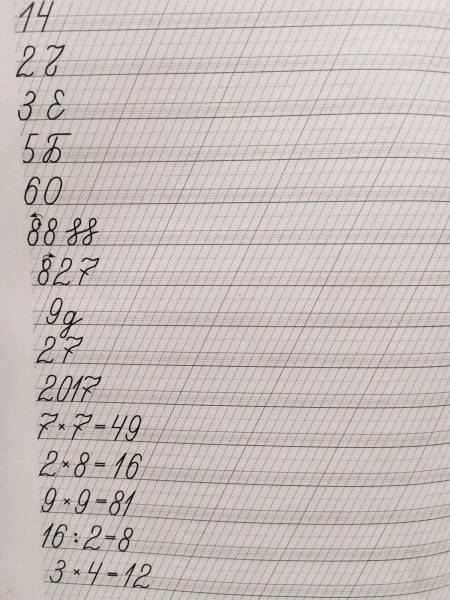 14
2 Г
3 Е
5 Б
6 О
88 88
827
9 д
27
2017
7 × 7 = 49
2 × 8 = 16
9 × 9 = 81
16 : 2 = 8
3 × 4 = 12